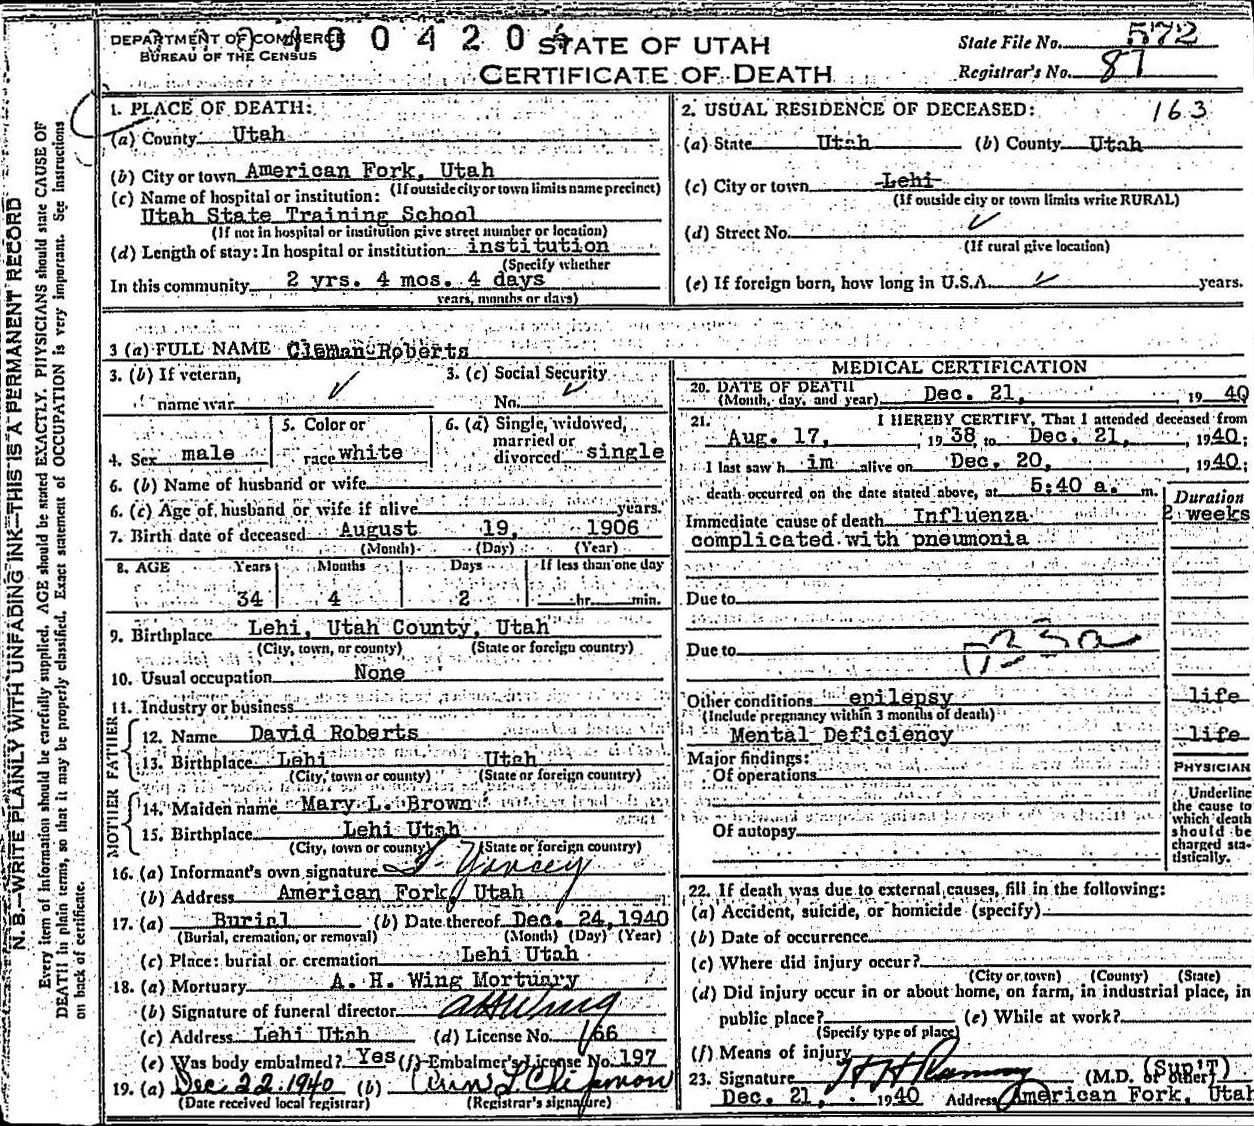 N. B.—WRITE PLAINLY WITH UNFADING INK—THIS IS A PERMANENT RECORD
Every item of information should be carefully supplied. AGE should be stated EXACTLY. PHYSICIANS should state CAUSE OF
DEATH in plain terms, so that it may be properly classified. Exact statement of OCCUPATION is very important. See instructions
on back of certificate.
DEPARTMENT OF COMMERCE
BUREAU OF THE CENSUS
0 0 4 2 0
STATE OF UTAH
CERTIFICATE OF DEATH
State File No. 572
Registrar's No. 87
1. PLACE OF DEATH:
(a) County Utah
(b) City or town American Fork, Utah
(If outside city or town limits name precinct)
(c) Name of hospital or institution:
Utah State Training School
(If not in hospital or institution give street number or location)
(d) Length of stay: In hospital or institution institution
(Specify whether
In this community 2 yrs. 4 mos. 4 days
years, months or days)
2. USUAL RESIDENCE OF DECEASED: 163
(a) State Utah (b) County Utah
(c) City or town Lehi
(If outside city or town limits write RURAL)
(d) Street No. ✓
(If rural give location)
(e) If foreign born, how long in U.S.A. ✓ years.
3 (a) FULL NAME Cleman Roberts
3. (b) If veteran, name war ✓
3. (c) Social Security No. ✓
4. Sex male
5. Color or race white
6. (a) Single, widowed, married or divorced single
6. (b) Name of husband or wife
6. (c) Age of husband or wife if alive years.
7. Birth date of deceased August 19, 1906
(Month) (Day) (Year)
8. AGE Years Months Days If less than one day
34 4 2 hr. min.
9. Birthplace Lehi, Utah County, Utah
(City, town, or county) (State or foreign country)
10. Usual occupation None
11. Industry or business
FATHER
12. Name David Roberts
13. Birthplace Lehi Utah
(City, town or county) (State or foreign country)
MOTHER
14. Maiden name Mary L. Brown
15. Birthplace Lehi Utah
(City, town or county) (State or foreign country)
16. (a) Informant's own signature Yancey
(b) Address American Fork, Utah
17. (a) Burial (b) Date thereof Dec. 24, 1940
(Burial, cremation, or removal) (Month) (Day) (Year)
(c) Place: burial or cremation Lehi Utah
18. (a) Mortuary A. H. Wing Mortuary
(b) Signature of funeral director A H Wing
(c) Address Lehi Utah (d) License No. 166
(e) Was body embalmed? Yes (f) Embalmer's License No. 197
19. (a) Dec 22 1940 (b)
(Date received local registrar) (Registrar's signature)
MEDICAL CERTIFICATION
20. DATE OF DEATH
(Month, day, and year) Dec. 21, 1940
21. I HEREBY CERTIFY, That I attended deceased from
Aug. 17, 1938, to Dec. 21, 1940;
I last saw h im alive on Dec. 20, 1940;
death occurred on the date stated above, at 5:40 a. m.
Duration
Immediate cause of death Influenza 2 weeks
complicated with pneumonia
Due to
Due to
Other conditions epilepsy life
(Include pregnancy within 3 months of death)
Mental Deficiency life
Major findings:
Of operations
Of autopsy
PHYSICIAN
Underline
the cause to
which death
should be
charged sta-
tistically.
22. If death was due to external causes, fill in the following:
(a) Accident, suicide, or homicide (specify)
(b) Date of occurrence
(c) Where did injury occur?
(City or town) (County) (State)
(d) Did injury occur in or about home, on farm, in industrial place, in
public place? (e) While at work?
(Specify type of place)
(f) Means of injury
23. Signature H H Ramsay (M.D. or other) (Sup'T)
Dec. 21, 1940 Address American Fork, Utah